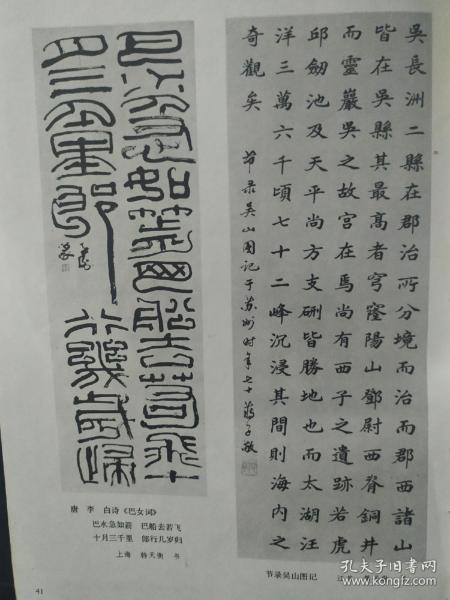 吳長洲二縣在郡治所分境而治而郡西諸山
皆在吳縣其最高者穹窿陽山鄧尉西脊銅井
而靈巖吳之故宮在焉尚有西子之遺跡若虎
邱劒池及天平尚方支硎皆勝地也而太湖汪
洋三萬六千頃七十二峰沉浸其間則海內之
奇觀矣
节录吴山图记于苏州时年七十蒋子敬
巴水急如箭巴船去若飛十
月三千里郎行幾歲歸
唐 李 白诗《巴女词》
巴水急如箭 巴船去若飞
十月三千里 郎行几岁归
上海 韩天衡 书
节录吴山图记
41
孔夫子旧书网